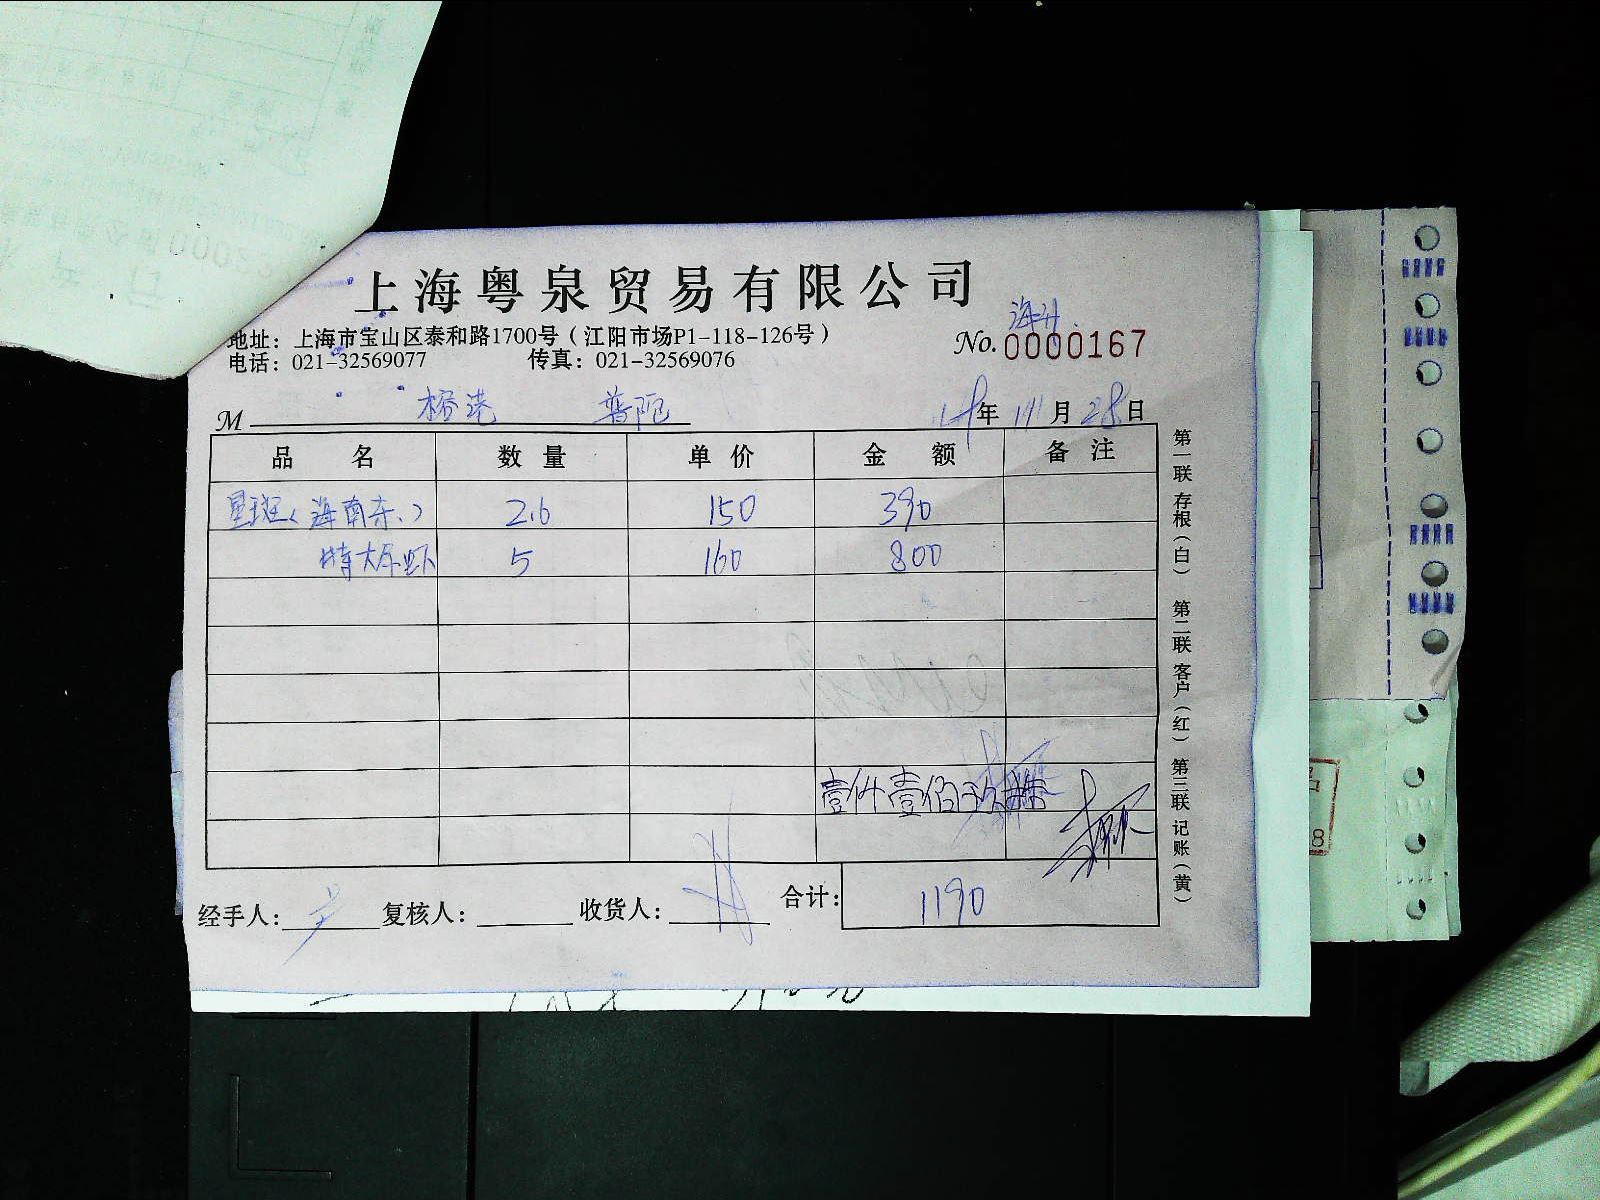 上海粤泉贸易有限公司
地址：上海市宝山区泰和路1700号（江阳市场P1-118-126号）
海升
No. 0000167
电话：021-32569077 传真：021-32569076
M 榕港 普陀 14年 11月 28日
品名 数量 单价 金额 备注
星斑（海南东、） 2.6 150 390
特大吊虾 5 160 800
壹仟壹佰玖
经手人： 复核人： 收货人： 合计： 1190
第一联 存根（白） 第二联 客户（红） 第三联 记账（黄）